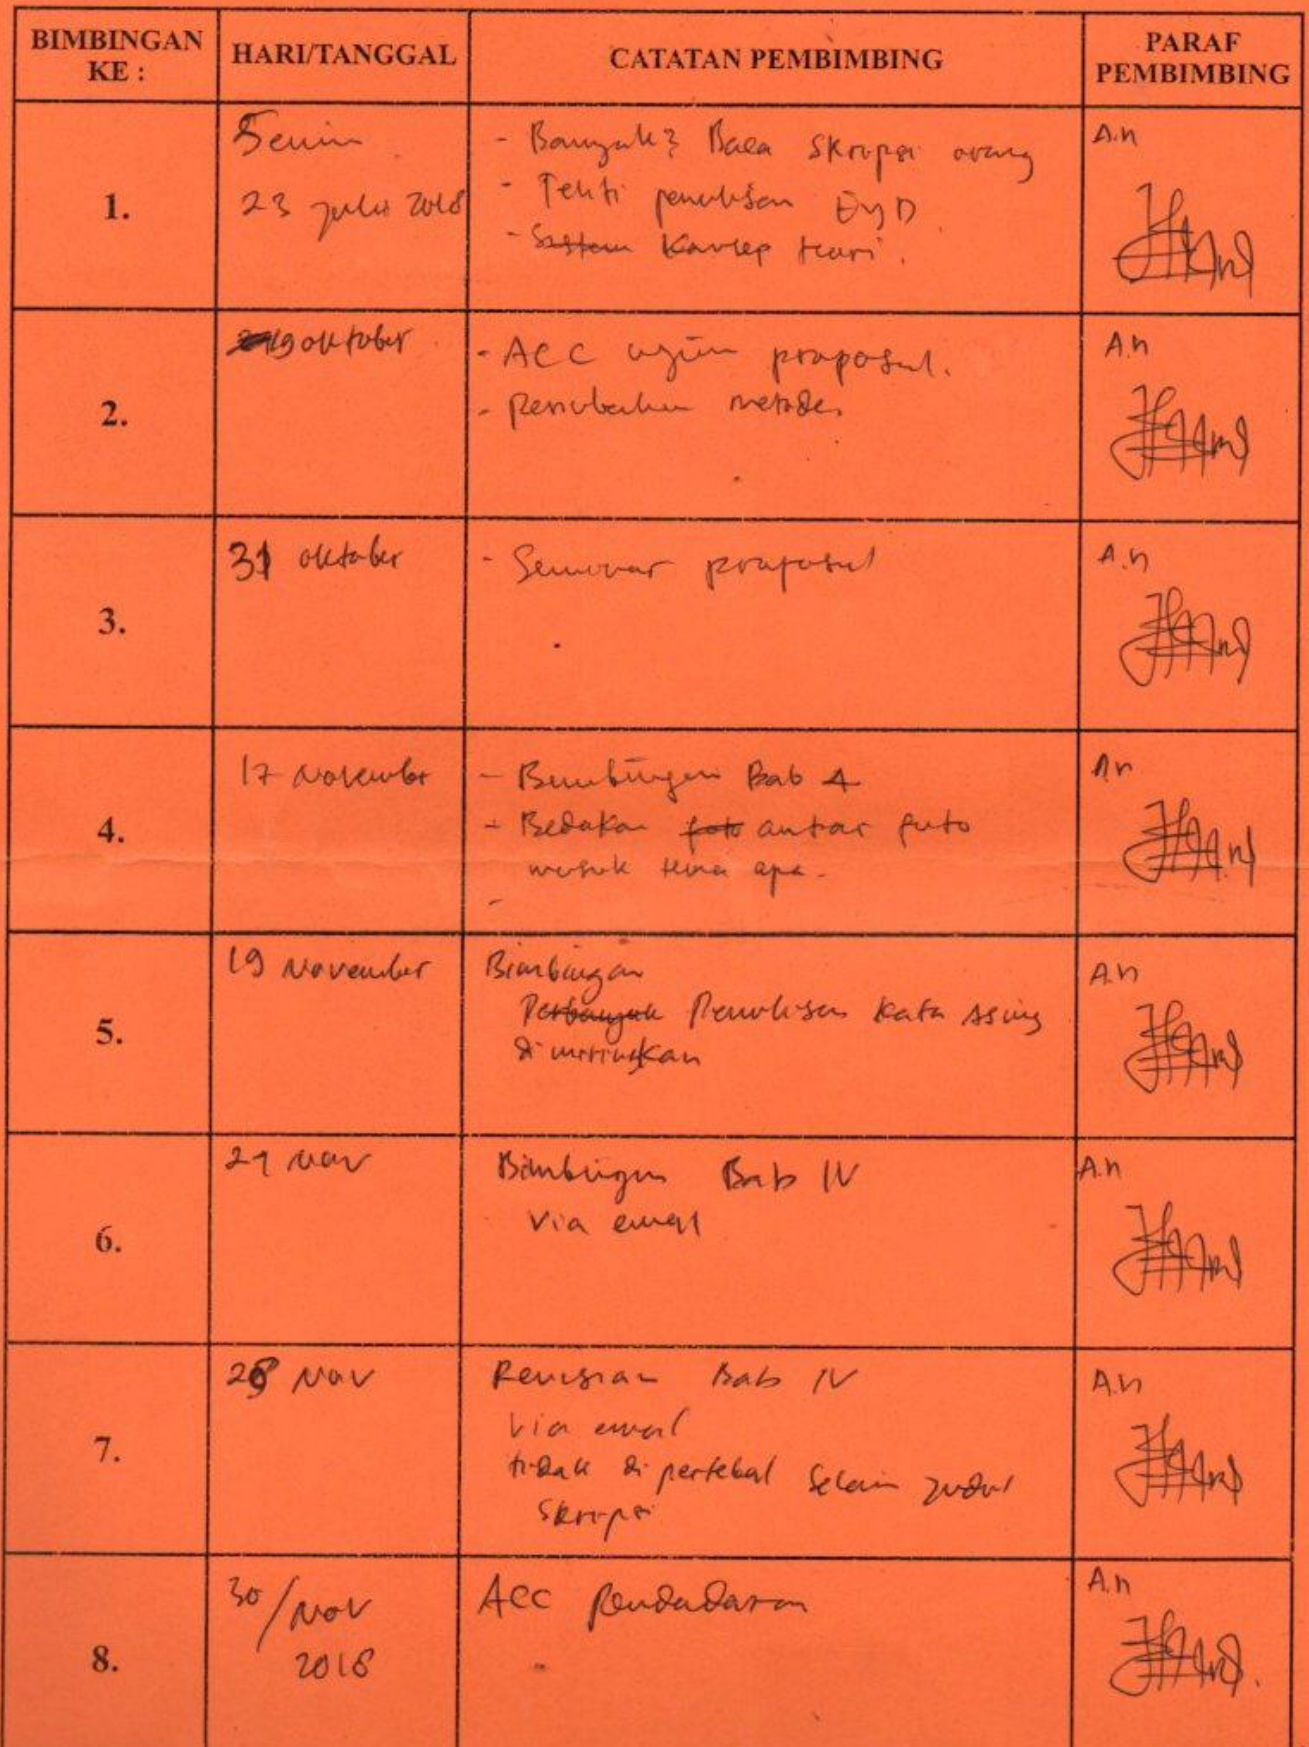 BIMBINGAN KE :
HARI/TANGGAL
CATATAN PEMBIMBING
PARAF PEMBIMBING
1.
Senin
23 Juli 2018
- Banyak2 Baca Skripsi orang
- Teliti penulisan EyD
- Sistem Konsep teori.
A.n
2.
19 oktober
- ACC ujian proposal.
- perubahan metode.
A.n
3.
31 oktober
- Seminar proposal
A.n
4.
17 November
- Bimbingan Bab 4
- Bedakan foto antar foto
masuk tema apa.
-
A.n
5.
19 November
Bimbingan
Perbanyak Penulisan kata Asing
di miringkan
A.n
6.
21 Nov
Bimbingan Bab IV
via email
A.n
7.
Nov
Revisian Bab IV
via email
tidak di pertebal selain judul
skripsi
A.n
8.
30/Nov
2018
ACC Pendadaran
A.n